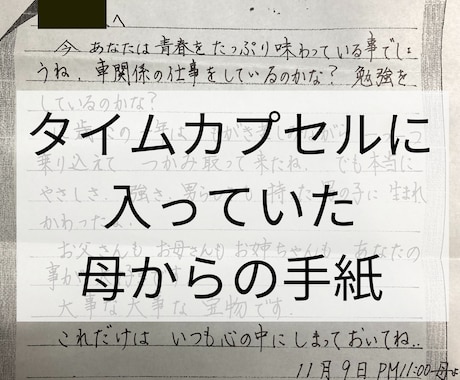 へ
今 あなたは青春をたっぷり味わっている事でしょ
うね。車関係の仕事をしているのかな？ 勉強を
しているのかな？
タイムカプセルに
乗り込えて つかみ取って来たね。でも本当に
やさしさ 強さ 男らしさも 持った 男の子に 生まれ
入っていた
かわったよ
お父さんも お母さんも お姉ちゃんも あなたの
母からの手紙
事が
大事な大事な 宝物です。
これだけは いつも心の中にしまっておいてね..
11月9日 PM11:00 母より